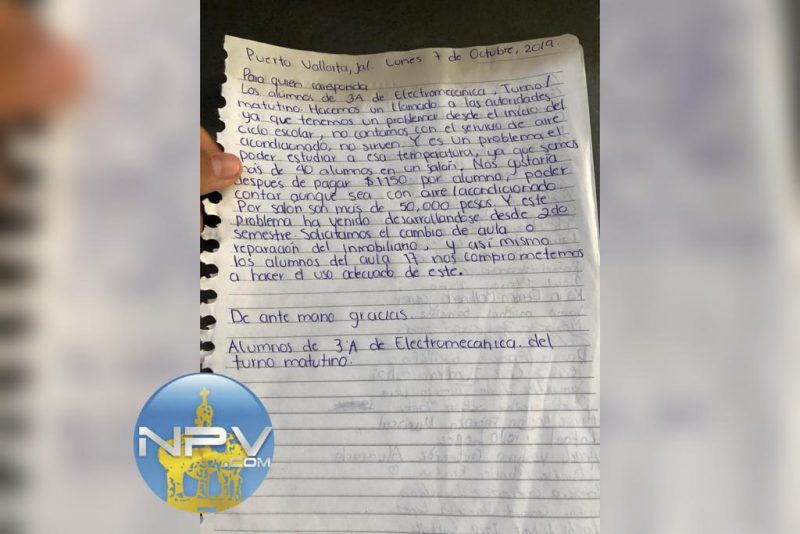 Puerto Vallarta, Jal. Lunes 7 de Octubre, 2019.
Para quien corresponda
Los alumnos de 3A de Electromecanica, Turno/
matutino. Hacemos un llamado a las autoridades
ya que tenemos un problema desde el inicio del
ciclo escolar, no contamos con el servicio de aire
acondicionado, no sirven. Y es un problema el
poder estudiar a esa temperatura, ya que somos
más de 40 alumnos en un salón. Nos gustaría
despues de pagar $1150 por alumno, poder
contar aunque sea con aire/acondicionado
Por salon son más de 50,000 pesos. Y este
problema ha venido desarrollandose desde 2do
semestre. Solicitamos el cambio de aula o
reparación del inmobiliano, y así mismo
los alumnos del aula 17 nos comprometemos
a hacer el uso adecuado de este.
De ante mano gracias.
Alumnos de 3°A de Electromecanica. del
turno matutino.
NPV
.COM